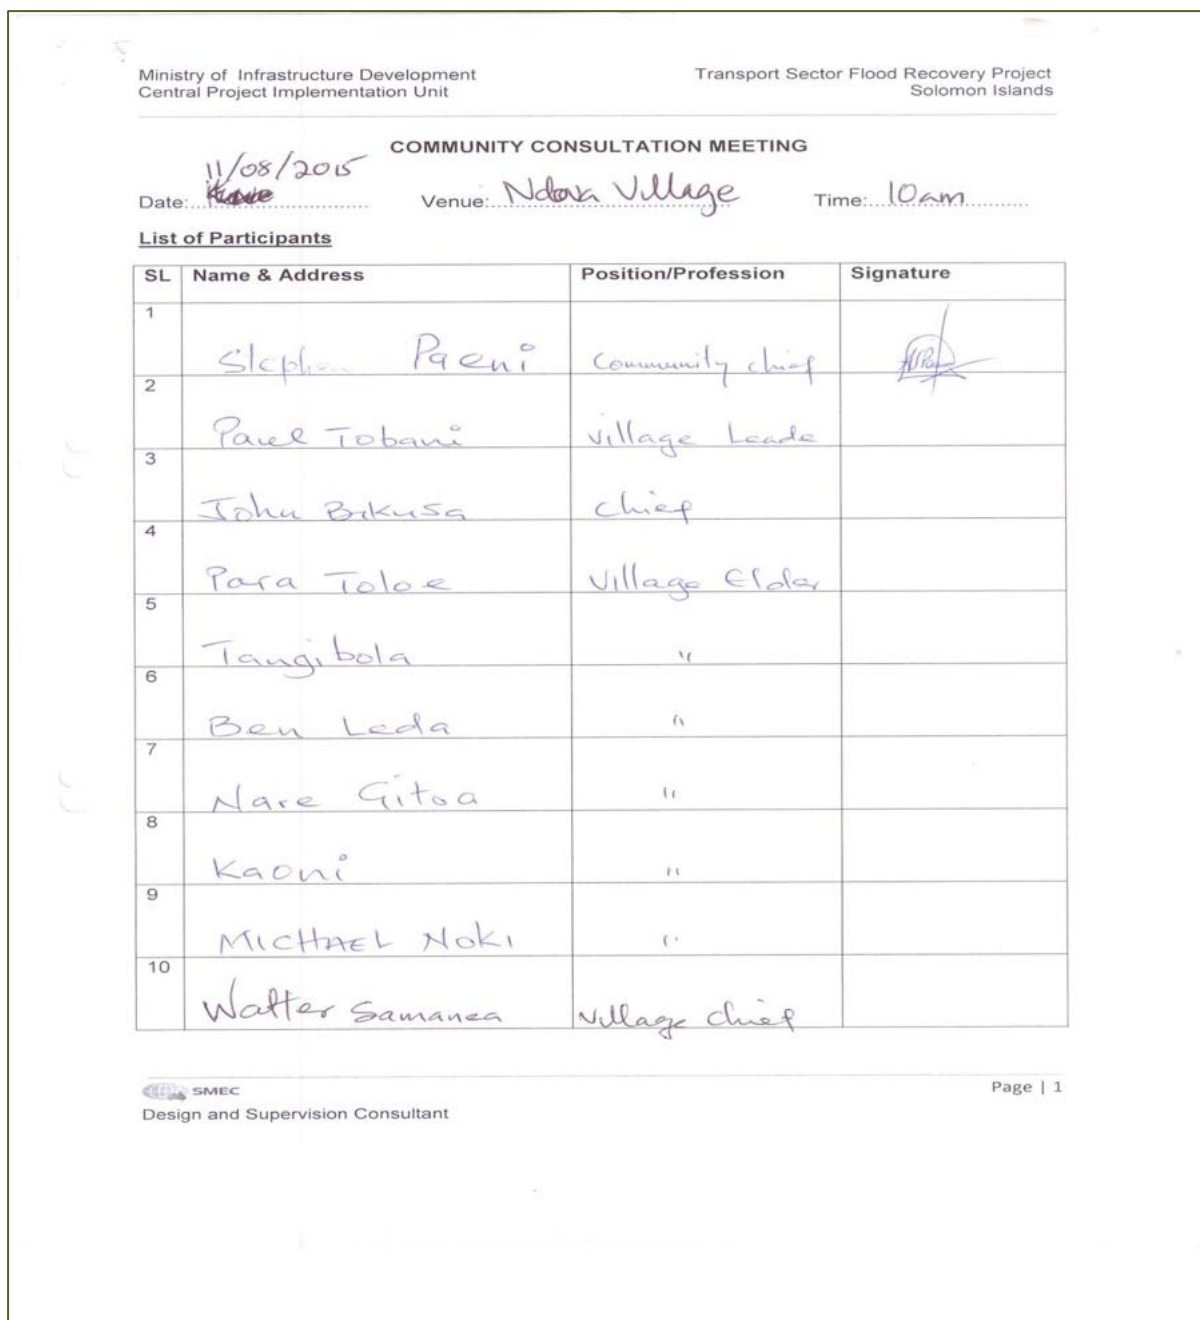 Ministry of Infrastructure Development Transport Sector Flood Recovery Project
Central Project Implementation Unit Solomon Islands
COMMUNITY CONSULTATION MEETING
11/08/2015
Date:.................... Venue: Ndova Village Time:...10am..........
List of Participants
SL Name & Address Position/Profession Signature
1 Stephen Paeni Community chief
2 Paul Tobani village Leade
3 John Bakusa chief
4 Para Toloe Village Elder
5 Tangibola "
6 Ben Leda "
7 Nare Gitoa "
8 Kaoni "
9 MICHAEL NOKI "
10 Walter Samanea Village chief
SMEC Page | 1
Design and Supervision Consultant